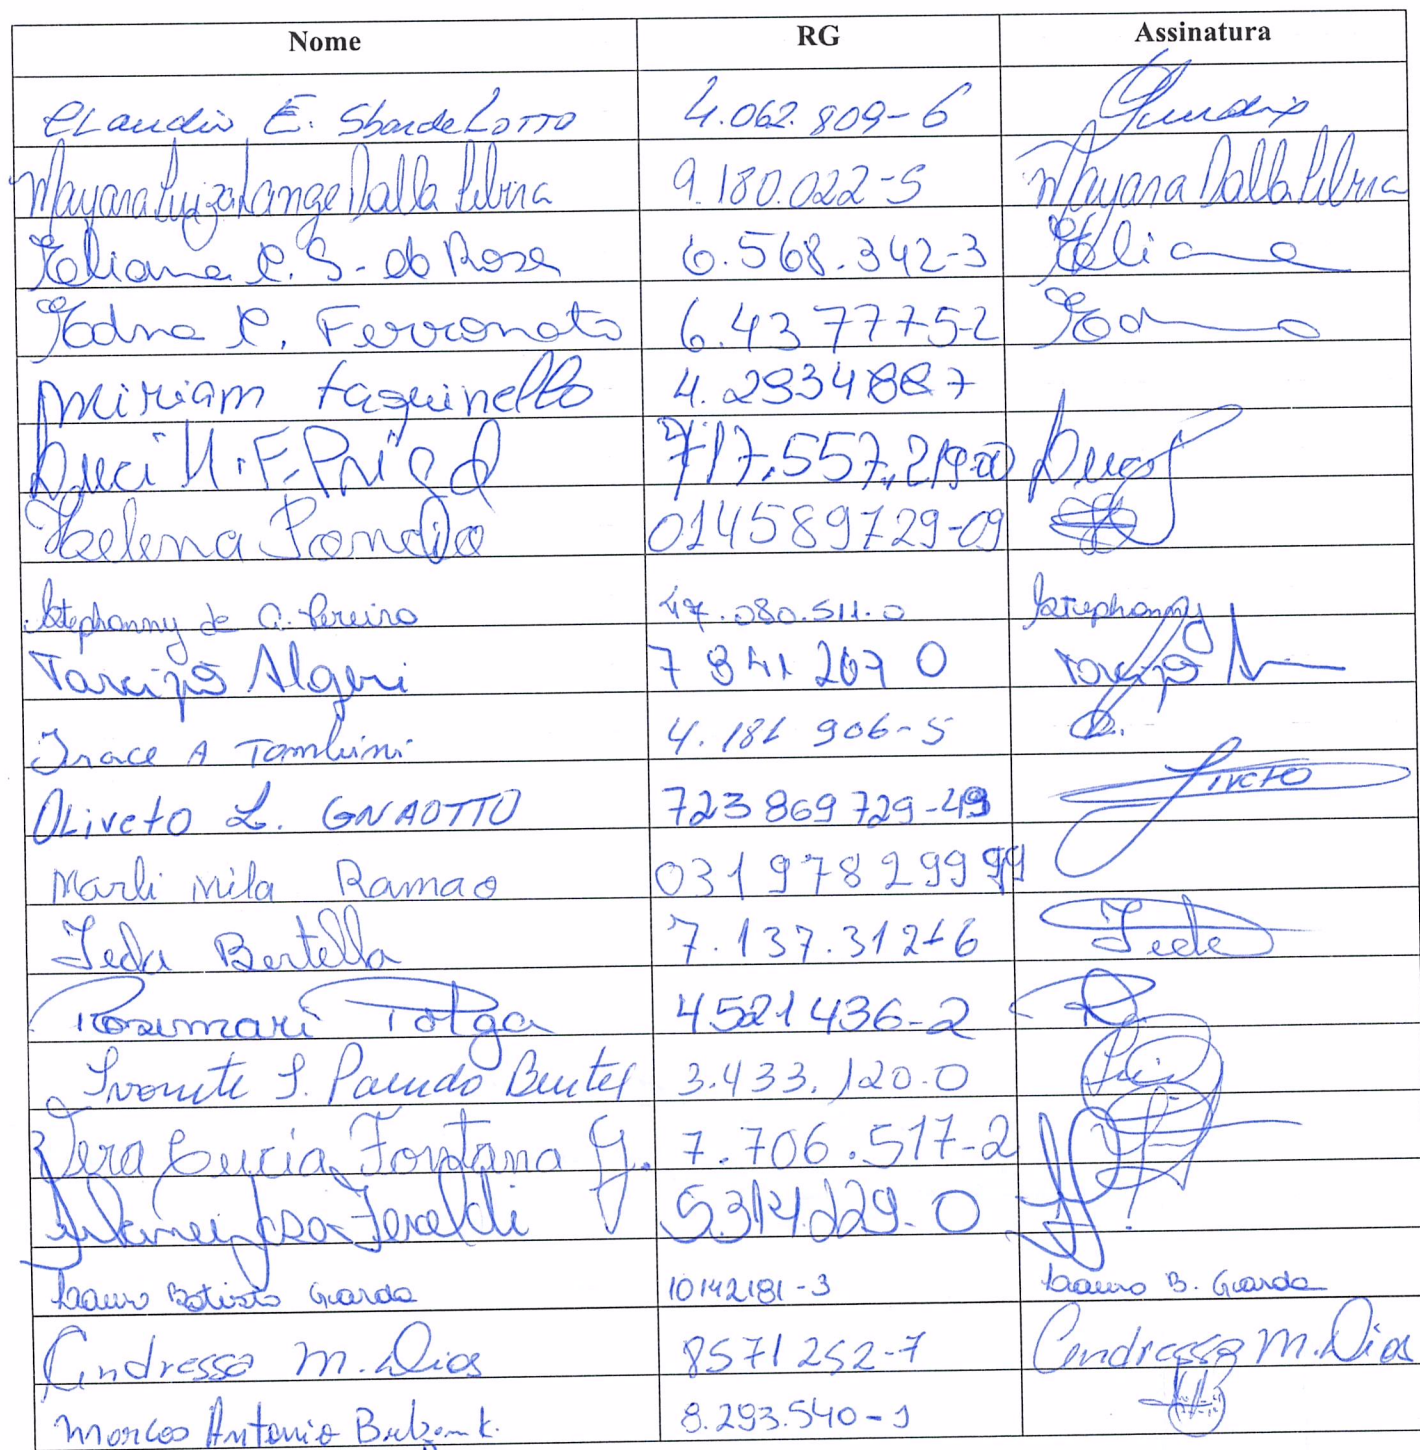 Nome RG Assinatura
Claudio E. SbardeLoTTo 4.062.809-6 Claudio
Mayana Luiza Lange Dalla Libera 9.180.022-5 Mayana Dalla Libera
Eliana C. S. da Rosa 6.568.342-3 Eliana
Edna C. Ferronato 6.43 77775-2 Edna
Miriam Faquinello 4.2934887
Luci M. F. 717.557.219-00
Helena 014589729-09
Stephanny de A. Pereira 47.080.511-0 Stephanny
Tarcizio Algeri 7 841 267 0 Tarcizio
Irace A Tombini 4.181 906-5
OLiveto L. GNAOTTO 723 869 729-49 liveto
Marli Mila Ramao 031 978 299 99
Ieda Bertella 7.137.312-6 Ieda
Rosemari Potga 4521436-2
Ivonete S. 3.433.120.0
Vera Lucia Fontana G. 7.706.517-2
5314229-0
Lauro Batista Guarda 10142181-3 Lauro B. Guarda
Andressa M. Dias 8571252-7 Andressa M. Dias
Marcos Antonio 8.293.540-1